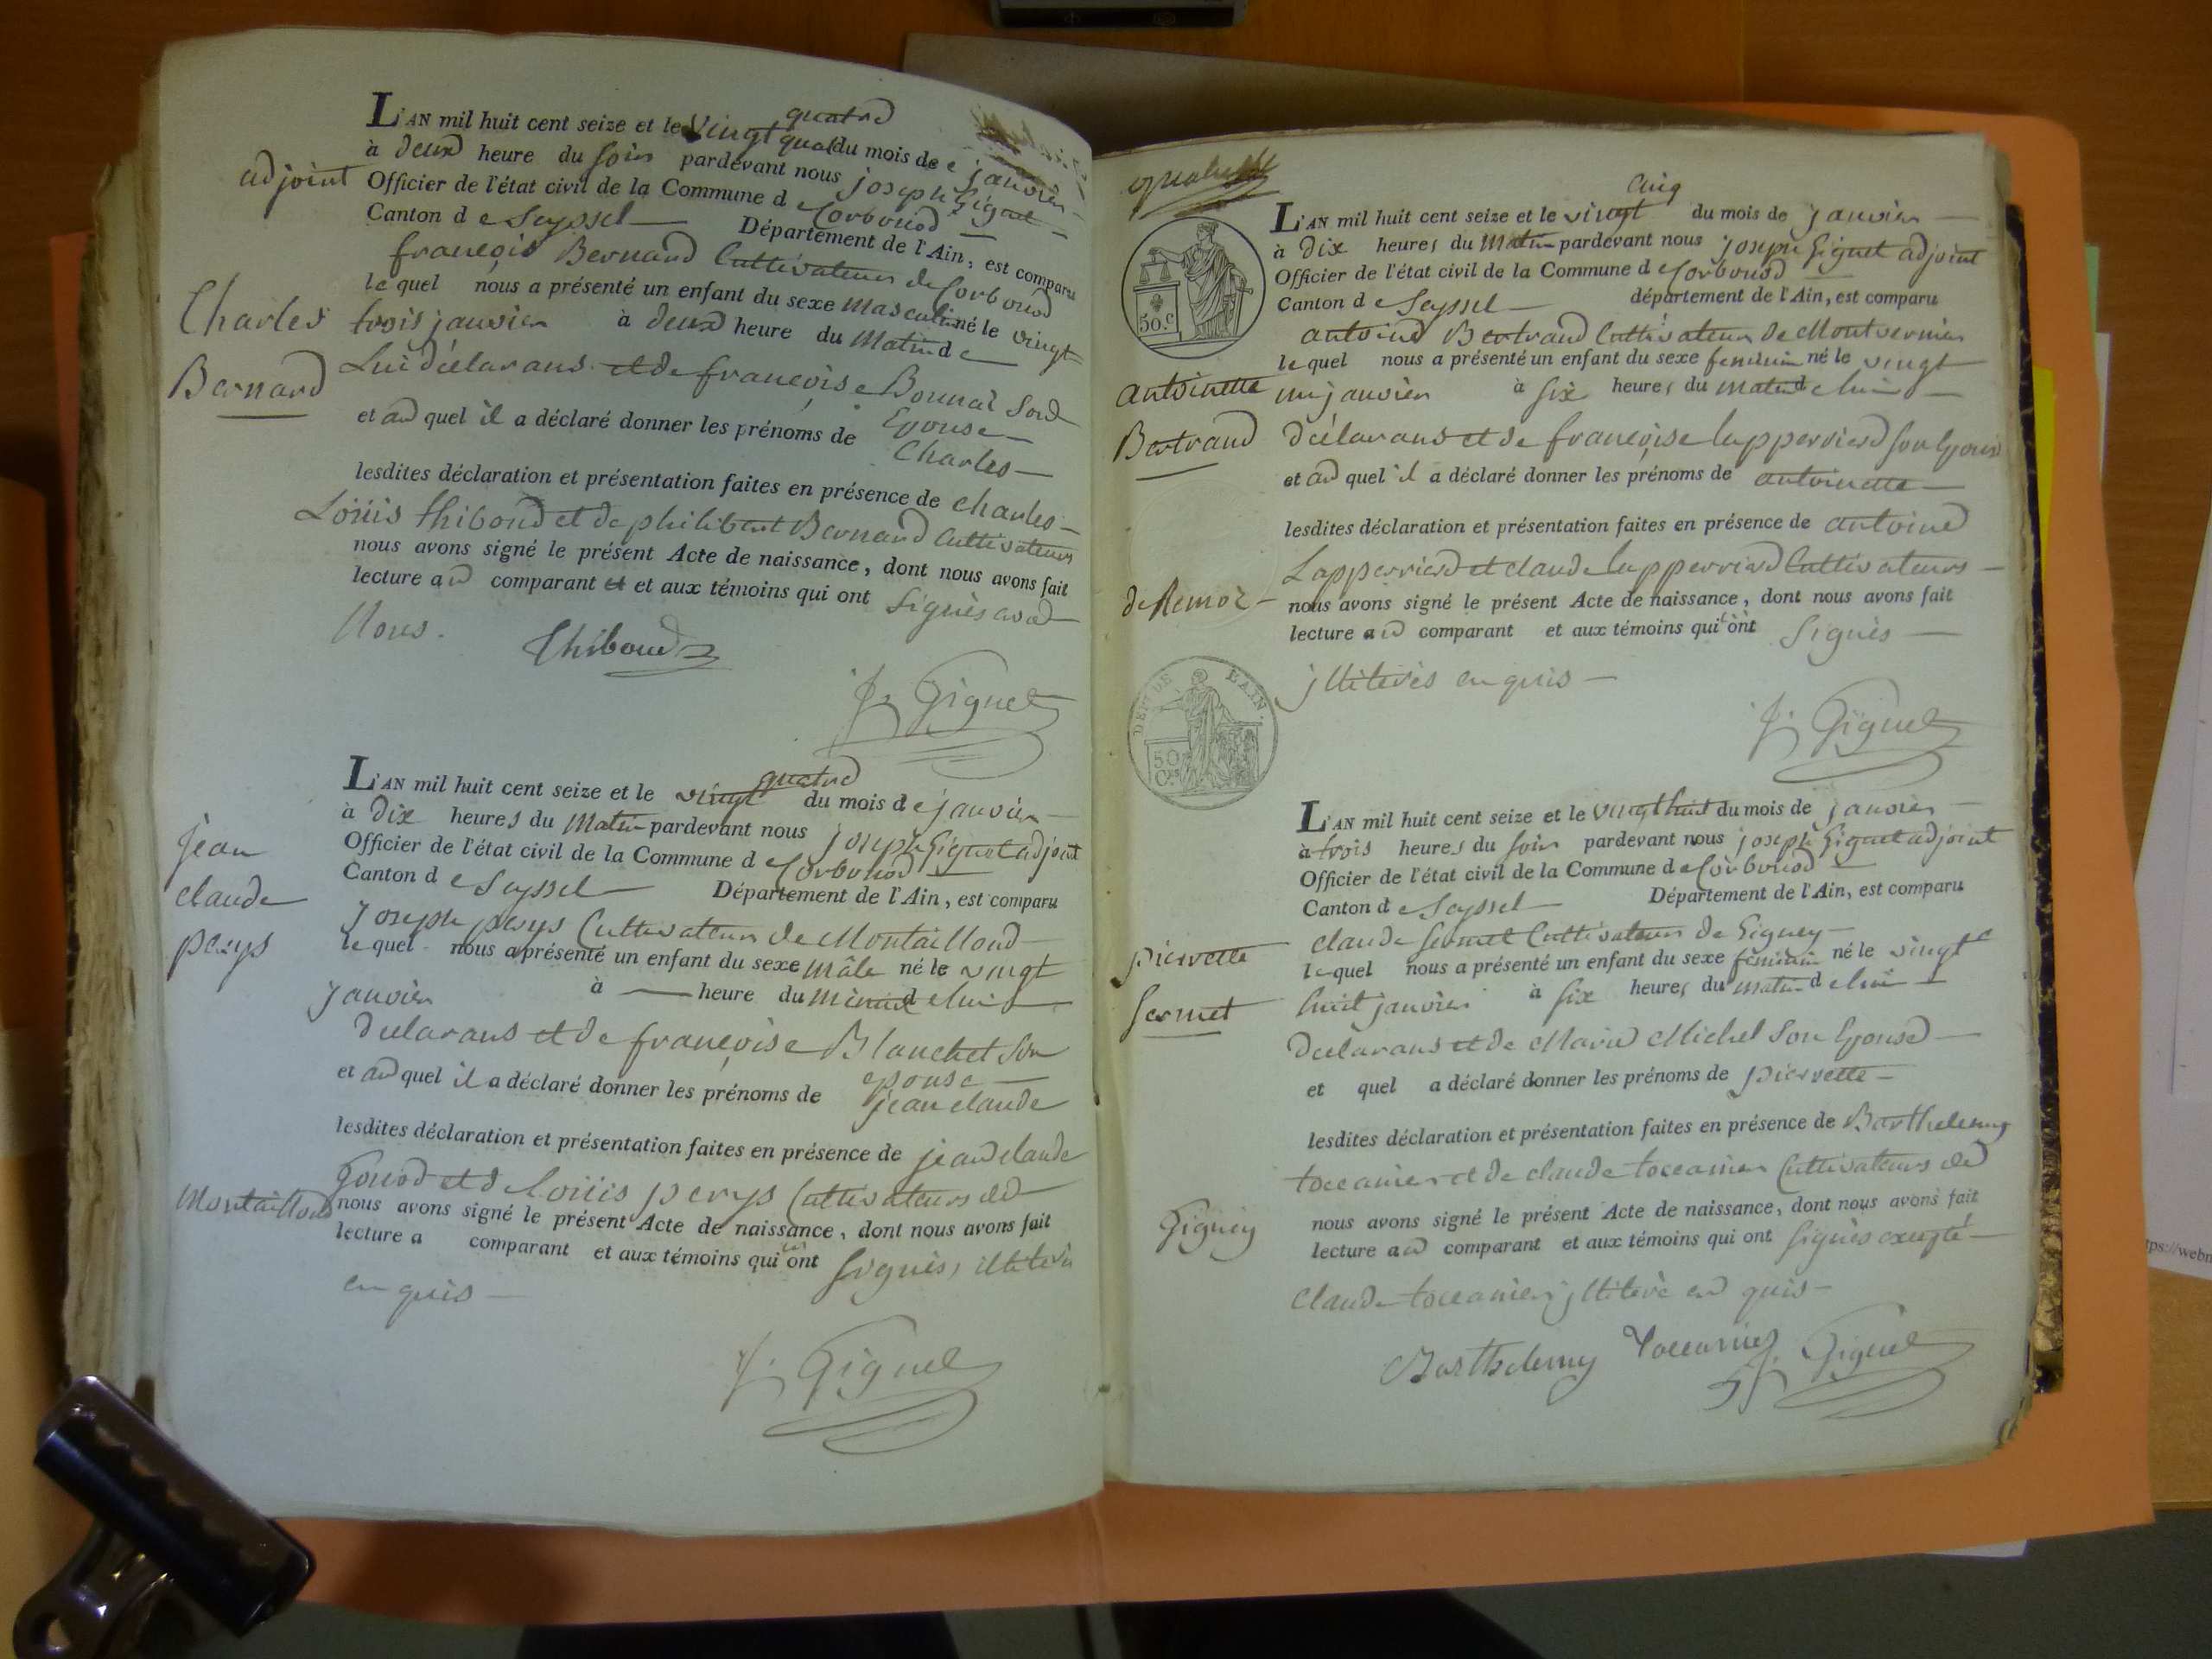 quatre
L'AN mil huit cent seize et le vingt du mois de janvier
à deux heure du soir pardevant nous joseph Giguet
adjoint Officier de l'état civil de la Commune de Corbonod
Canton de Seyssel Département de l'Ain, est comparu
françois Bernard Cultivateur de Corbonod
lequel nous a présenté un enfant du sexe masculin né le vingt
Charles trois janvier à deux heure du Matin de
Bernard Lui déclarans et de françoise Bonnaz Son
Epouse
et au quel il a déclaré donner les prénoms de Charles
lesdites déclaration et présentation faites en présence de charles
Loüis thiboud et de philibert Bernard Cultivateurs
nous avons signé le présent Acte de naissance, dont nous avons fait
lecture au comparant et et aux témoins qui ont Signés avec
Nous.
Thiboud
J. Giguet
quatre
L'AN mil huit cent seize et le vingt du mois de janvier
à Dix heures du Matin pardevant nous joseph Giguet adjoint
Officier de l'état civil de la Commune de Corbonod
Canton de Seyssel Département de l'Ain, est comparu
jean claude perys
joseph perys Cultivateur de Montailloud
lequel nous a présenté un enfant du sexe mâle né le vingt
janvier à heure du Minuit de lui
declarans et de françoise Blanchet Son
epouse
et au quel il a déclaré donner les prénoms de jean claude
lesdites déclaration et présentation faites en présence de jean claude
Gonod et de Loüis perys Cultivateurs de
Montailloud nous avons signé le présent Acte de naissance, dont nous avons fait
lecture a comparant et aux témoins qui n'ont Signés, illiteré
en quis
J. Giguet
50.c
cinq
L'AN mil huit cent seize et le vingt du mois de janvier
à Dix heures du Matin pardevant nous joseph Giguet adjoint
Officier de l'état civil de la Commune de Corbonod
Canton de Seyssel département de l'Ain, est comparu
antoine Bertrand Cultivateur de Montvernier
lequel nous a présenté un enfant du sexe feminin né le vingt
antoinette un janvier à six heures du matin de lui
Bertrand déclarans et de françoise lapperriere son Epouse
et au quel il a déclaré donner les prénoms de antoinette
lesdites déclaration et présentation faites en présence de antoine
Lapperriere et claude lapperriere Cultivateurs
de Remoz nous avons signé le présent Acte de naissance, dont nous avons fait
lecture au comparant et aux témoins qui n'ont Signès
jlliterés en quis
DEPT DE L'AIN.
50 Ces
J. Giguet
L'AN mil huit cent seize et le vingt huit du mois de janvier
à trois heures du soir pardevant nous joseph Giguet adjoint
Officier de l'état civil de la Commune de Corbonod
Canton de Seyssel Département de l'Ain, est comparu
claude sermet Cultivateur de Gigney
pierrette lequel nous a présenté un enfant du sexe féminin né le vingt
Sermet huit janvier à six heures du matin de lui
Declarans et de Marie Michel Son Epouse
et quel a déclaré donner les prénoms de pierrette
lesdites déclaration et présentation faites en présence de Barthelemy
toccanier et de claude toccanier Cultivateurs de
Gigney nous avons signé le présent Acte de naissance, dont nous avons fait
lecture au comparant et aux témoins qui ont signès excepté
claude toccanier jlliteré en quis
Barthelemy Toccanier J. Giguet